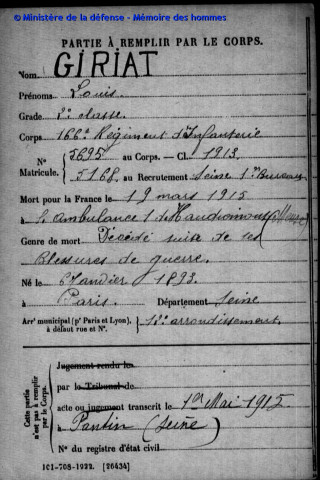 © Ministère de la défense - Mémoire des hommes
PARTIE À REMPLIR PAR LE CORPS.
Nom GIRIAT
Prénoms Louis
Grade 2e classe
Corps 166e Régiment d'Infanterie
N° Matricule. { 5695 au Corps. — Cl. 1913
5168 au Recrutement Seine 1er Bureau
Mort pour la France le 19 mars 1915
à l'ambulance 1 d'Haudiomont (Meuse)
Genre de mort Décédé suite de ses
blessures de guerre.
Né le 6 Janvier 1893
à Paris. Département Seine
Arrt municipal (pr Paris et Lyon), à défaut rue et N°. arrondissement
Cette partie n'est pas à remplir par le Corps.
Jugement rendu le
par le Tribunal de
acte ou jugement transcrit le 1er Mai 1915
à Pantin (Seine)
N° du registre d'état civil
1C1-708-1922. [26434]